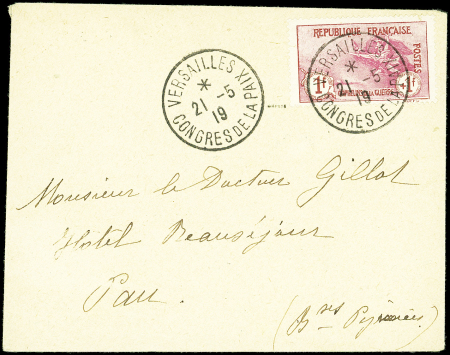 VERSAILLES
*
21 -5
19
CONGRES DE LA PAIX
REPUBLIQUE FRANÇAISE
POSTES
1F
+1F
ORPHELINS DE LA GUERRE
VERSAILLES
*
21 -5
19
CONGRES DE LA PAIX
Monsieur le Docteur Gillot
Hôtel Beauséjour
Pau.
(Bses Pyrénées)